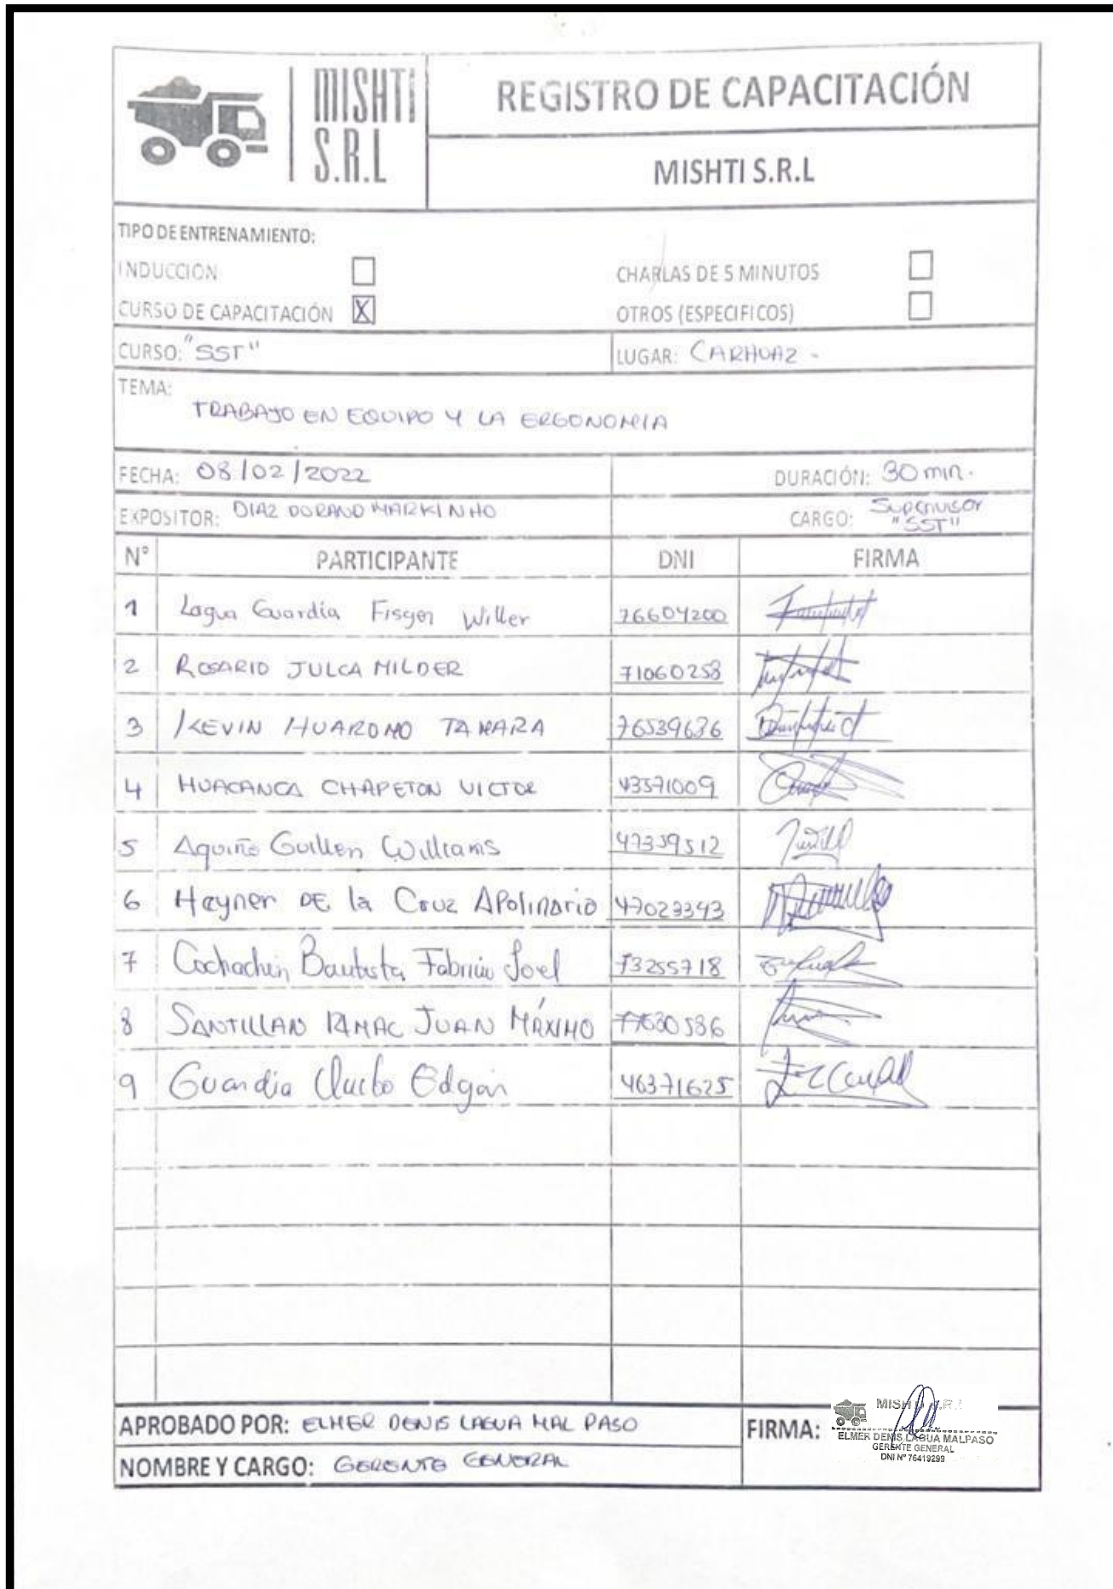 MISHTI
S.R.L
REGISTRO DE CAPACITACIÓN
MISHTI S.R.L
TIPO DE ENTRENAMIENTO:
INDUCCION
CHARLAS DE 5 MINUTOS
CURSO DE CAPACITACIÓN X
OTROS (ESPECIFICOS)
CURSO: "SST"
LUGAR: CARHUAZ -
TEMA:
TRABAJO EN EQUIPO Y LA ERGONOMIA
FECHA: 08/02/2022
DURACIÓN: 30 min.
EXPOSITOR: DIAZ DORAND MARKINHO
CARGO: Supervisor "SST"
N° PARTICIPANTE DNI FIRMA
1 Lagua Guardia Fisger Willer 76604200
2 ROSARIO JULCA MILDER 71060258
3 KEVIN HUAROMO TAMARA 76539636
4 HUACANCA CHAPETON VICTOR 43571009
5 Aquiño Guillen Williams 47359512
6 Heyner DE la Cruz APolinario 47023343
7 Cochachin Bautista Fabricio Joel 73255718
8 SANTILLAN JUAN MÁXIMO 77630586
9 Guardia Edgar 46371625
APROBADO POR: ELMER DENIS LAGUA MAL PASO
NOMBRE Y CARGO: GERENTE GENERAL
FIRMA:
MISHTI S.R.L
ELMER DENIS LAGUA MALPASO
GERENTE GENERAL
DNI N° 76419299